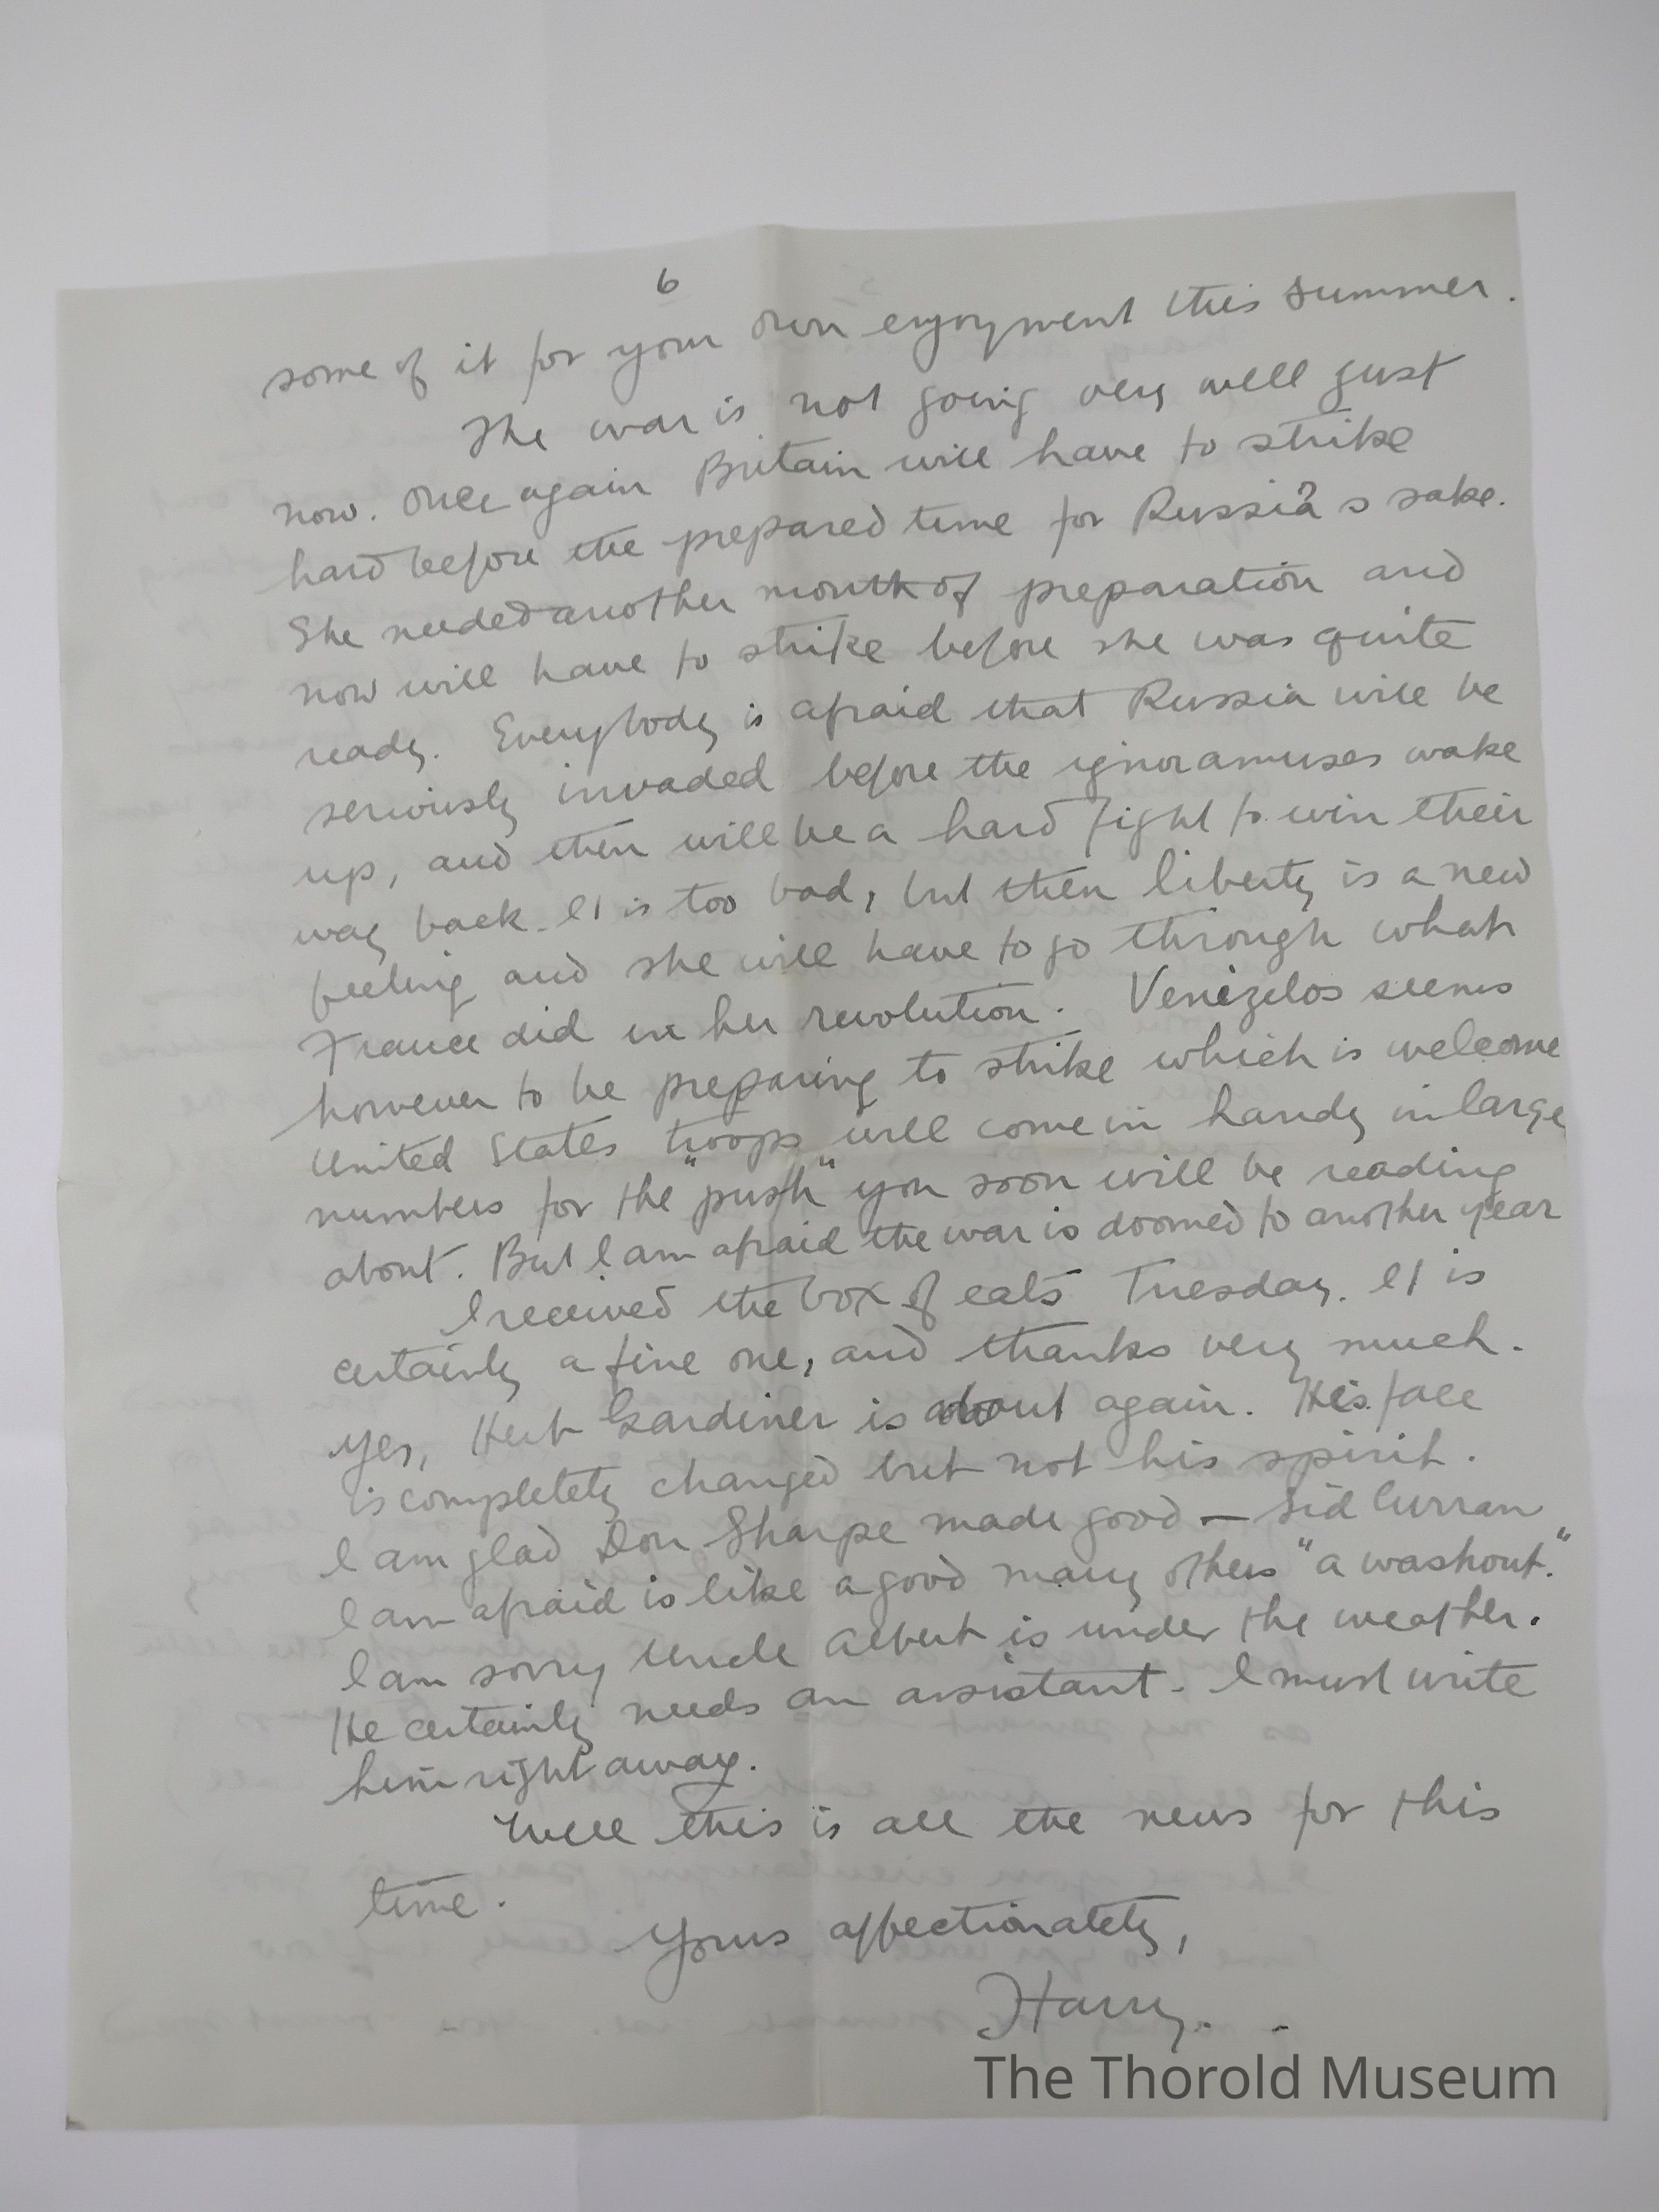 6
some of it for your own enjoyment this summer.
The war is not going very well just
now. Once again Britain will have to strike
hard before the prepared time for Russia's sake.
She needed another month of preparation and
now will have to strike before she was quite
ready. Everybody is afraid that Russia will be
seriously invaded before the ignoramuses wake
up, and then will be a hard fight to win their
way back. It is too bad, but then liberty is a new
feeling and she will have to go through what
France did in her revolution. Venizelos seems
however to be preparing to strike which is welcome
United States troops will come in handy in large
numbers for the "push" you soon will be reading
about. But I am afraid the war is doomed to another year
I received the box of eats Tuesday. It is
certainly a fine one, and thanks very much.
Yes, Herb Gardiner is about again. His face
is completely changed but not his spirit.
I am glad Don Sharpe made good — Sid Curran
I am afraid is like a good many others "a washout."
I am sorry Uncle Albert is under the weather.
He certainly needs an assistant. I must write
him right away.
Well this is all the news for this
time.
Yours affectionately,
Harry.
The Thorold Museum